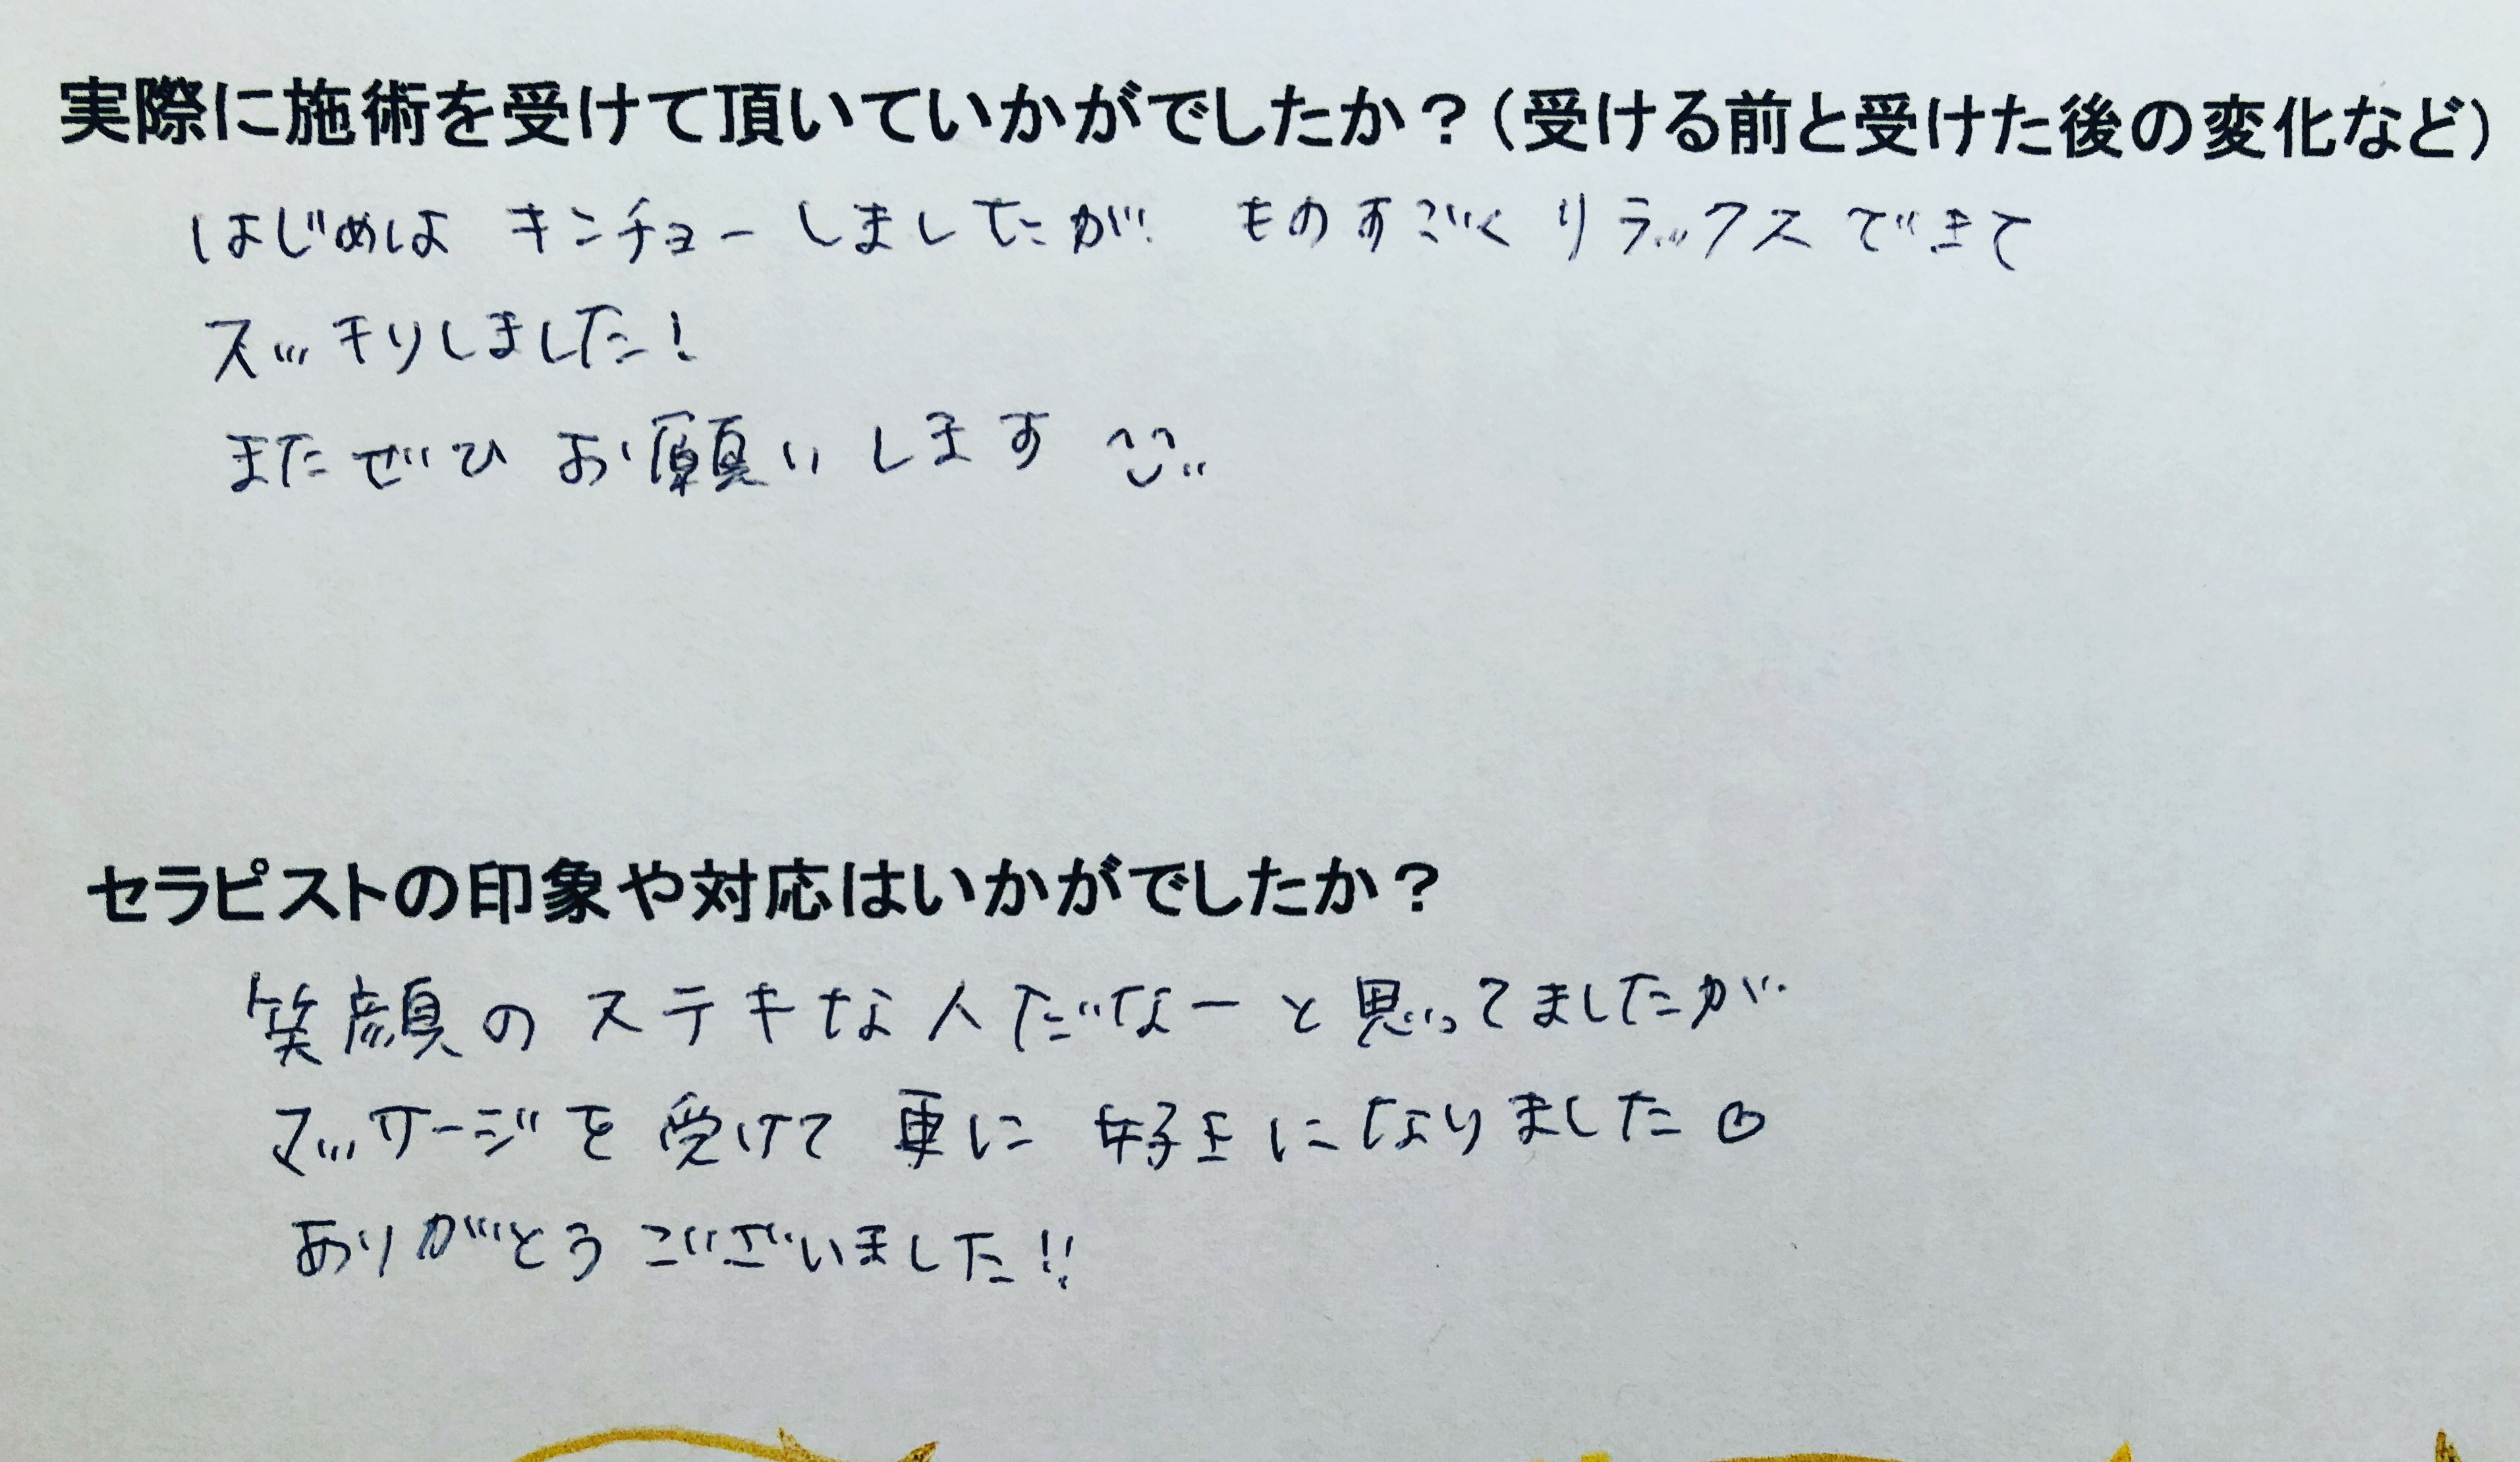 実際に施術を受けて頂いていかがでしたか？（受ける前と受けた後の変化など）
はじめは キンチョーしましたが ものすごく リラックスできて
スッキリしました！
またぜひ お願いします
セラピストの印象や対応はいかがでしたか？
笑顔の ステキな人だなーと思ってましたが
マッサージを受けて 更に 好きになりました
ありがとうございました!!